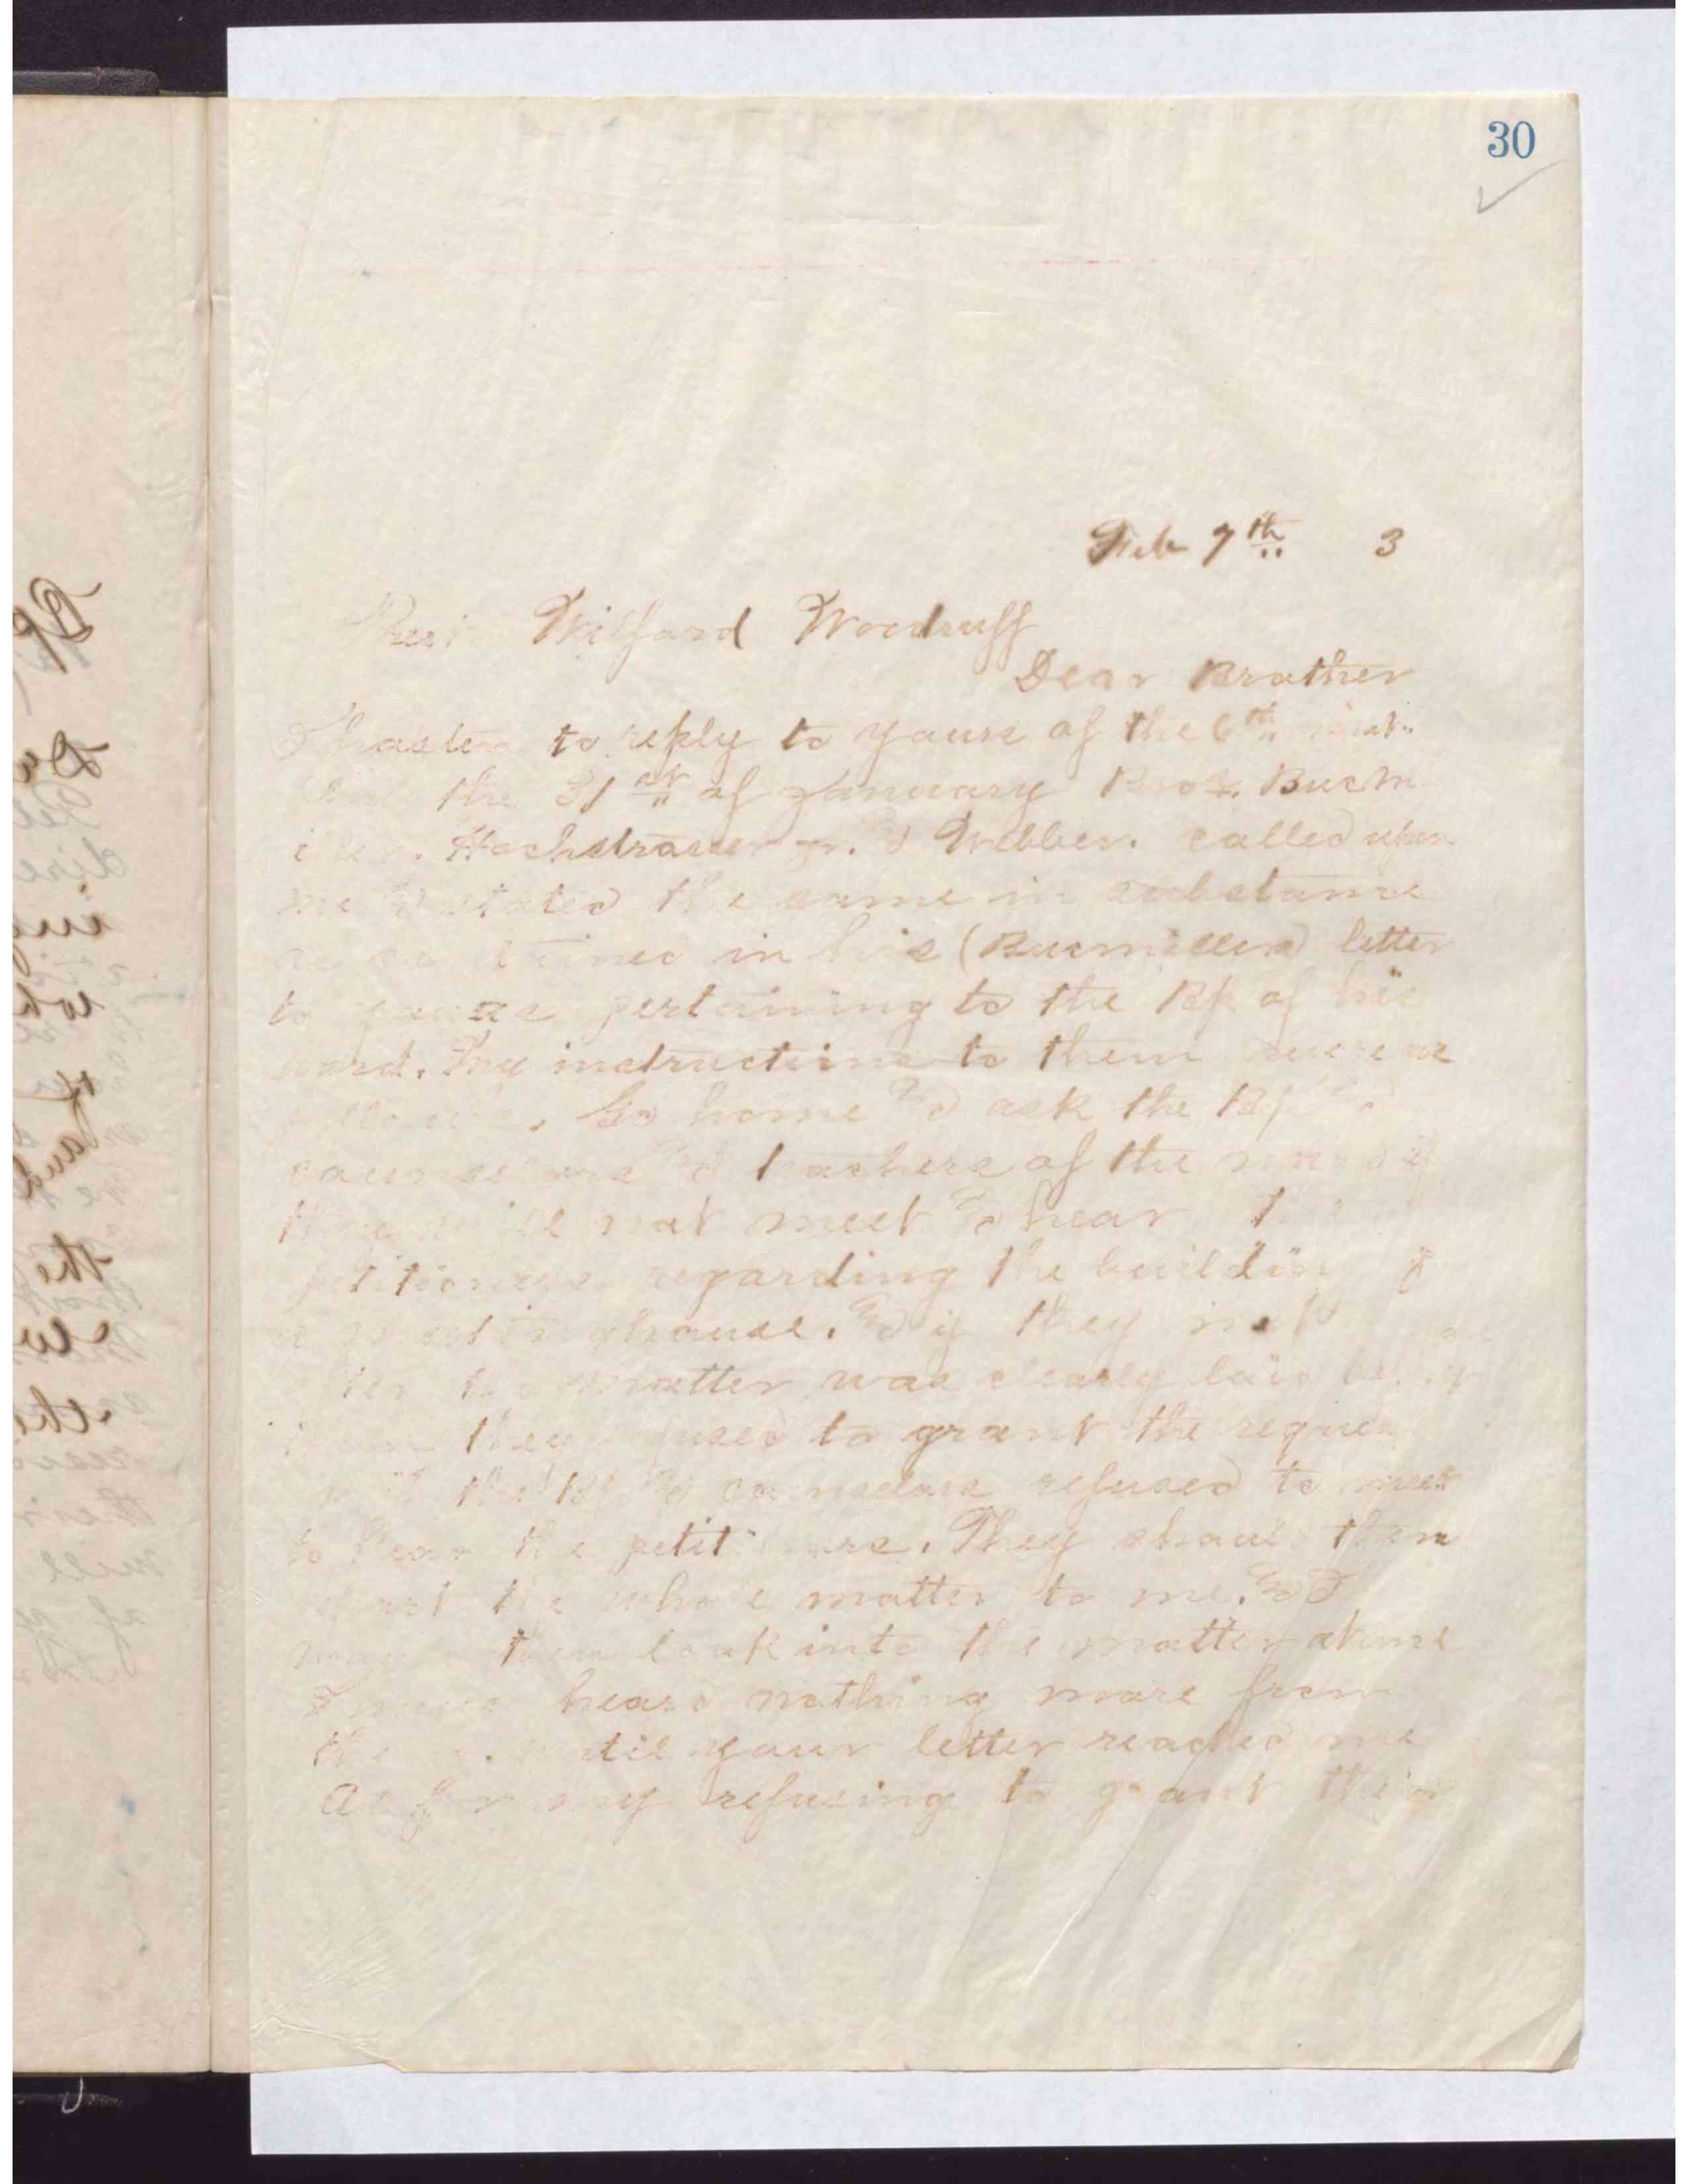 30
Feb 7th 3
Prest Wilford Woodruff
Dear Brother
I hasten to reply to yours of the 6th inst.
the 31st of January Bros. Burm
iller. Hochstrasser jr. & Webber. called upon
me & stated the same in substance
as contained in his (Burmillers) letter
to yourse pertaining to the Bp of his
ward. My instructions to them were as
follows. Go home & ask the Bp &
counselors & teachers of the ward if
they will not meet & hear the
petitioners regarding the building of
a meetinghouse. & if they met
matter was clearly laid
they refused to grant the reques
the Bp & counselors refused to meet
to hear the petitioners. They should then
report the whole matter to me. & I
would then look into the matter at once
I have heard nothing more from
them. until your letter reached me
As for my refusing to grant their